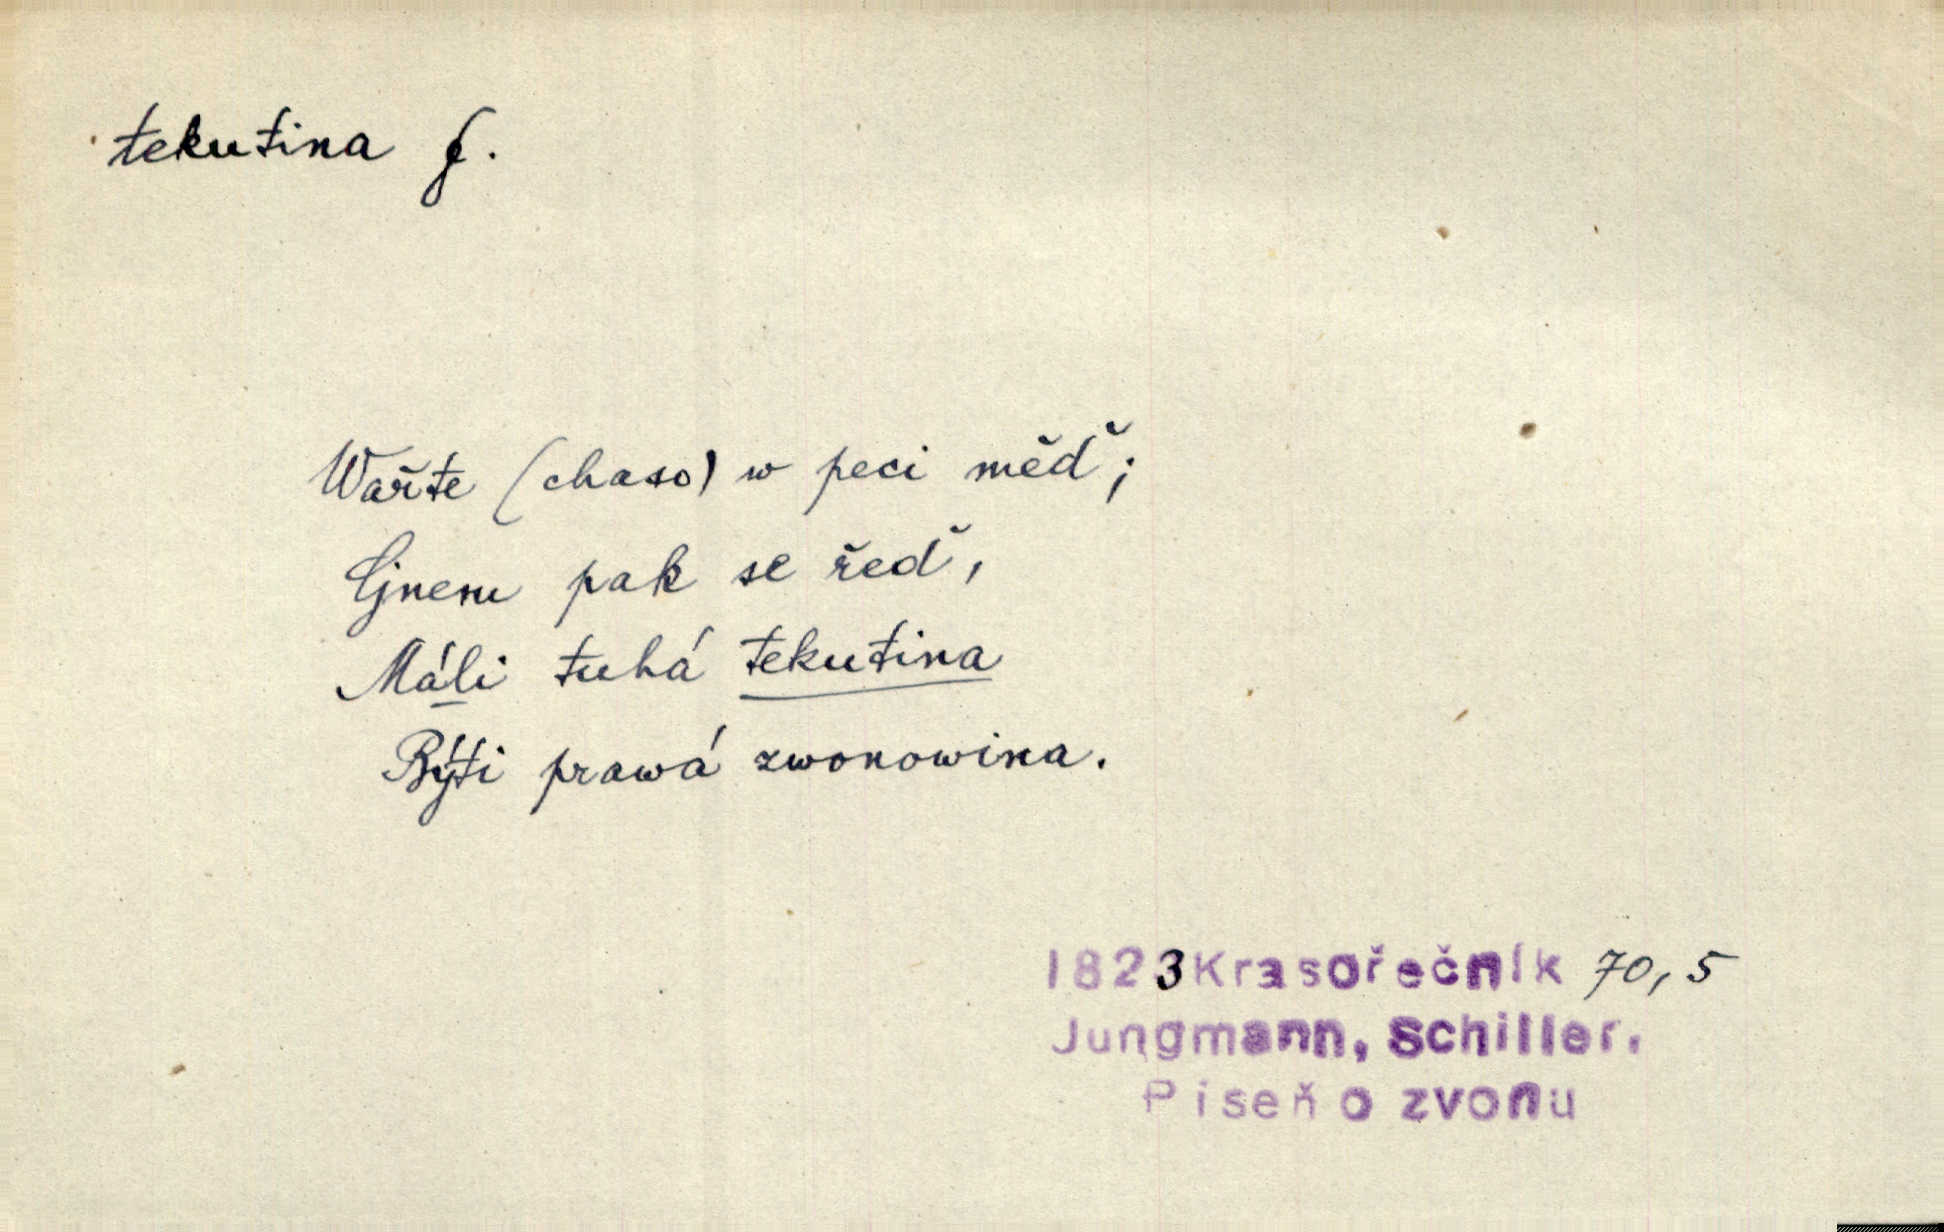 tekutina f.
Wařte (chaso) w peci měď;
Cjnem pak se řeď,
Máli tuhá tekutina
Býti prawá zwonowina.
1823 Krasořečník 70,5
Jungmann, Schiller.
Píseň o zvonu